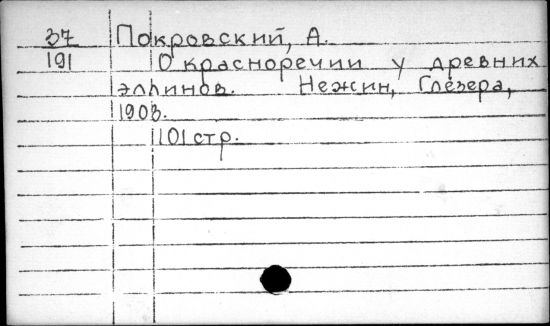 37 Покровский, А.
191 О красноречии у древних
эллинов. Нежин, Глезера,
1903.
101 стр.